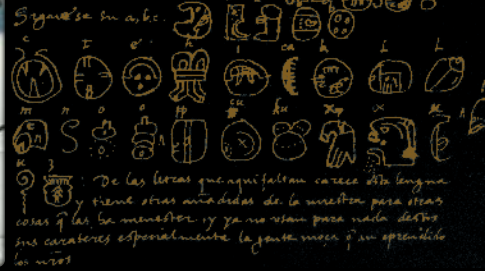 Siguese su a, b, c.
c t e h i ca k l l
m n o o pp cu ku x x u
u z De las letras que aqui faltan carece esta lengua
y tiene otras añadidas de la nuestra para otras
cosas q̃ las ha menester, y ya no usan para nada destos
sus carateres especialmente la gente moça q̃ an aprendido
los nros